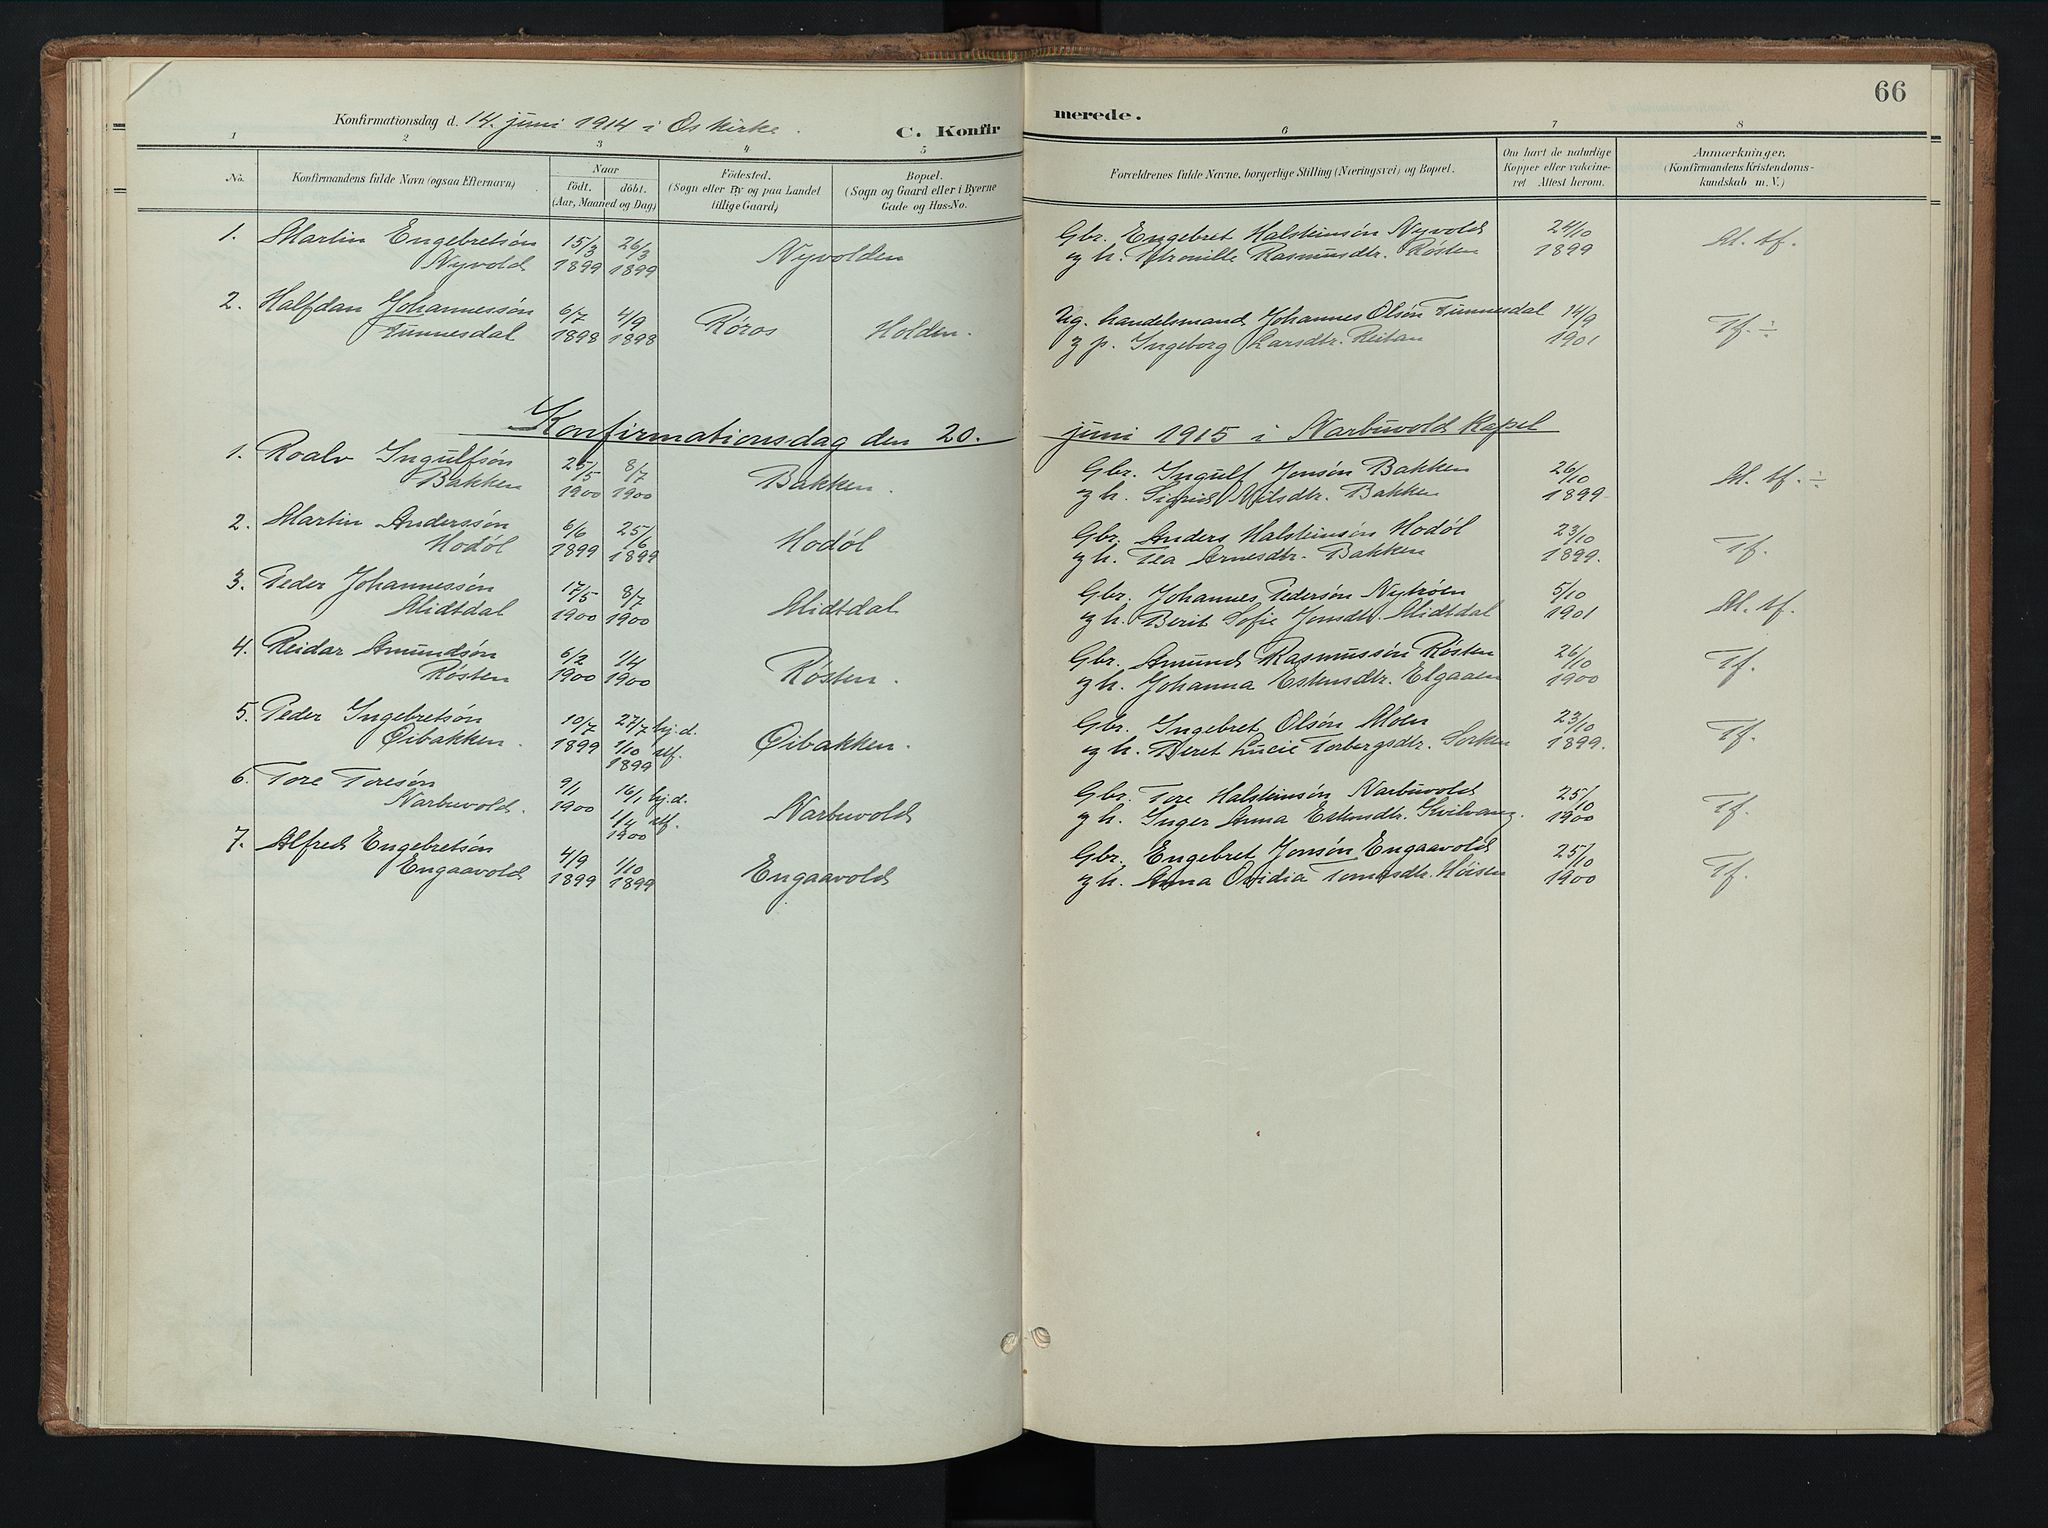 66
Konfirmationsdag d. 14. juni 1914 i Os kirke.
C. Konfirmerede.
1 2 3 4 5 6 7 8
No.
Konfirmandens fulde Navn (ogsaa Efternavn)
Naar
født. døbt.
(Aar, Maaned og Dag)
Födested.
(Sogn eller By og paa Landet
tillige Gaard)
Bopæl.
(Sogn og Gaard eller i Byerne
Gade og Hus-No.
Forældrenes fulde Navne, borgerlige Stilling (Næringsvei) og Bopæl.
Om havt de naturlige
Kopper eller vakcine-
ret Attest herom.
Anmærkninger,
(Konfirmandens Kristendoms-
kundskab m. V.)
1. Martin Engebretsøn 15/3 26/3 Nyvolden Gbr. Engebret Halsteinsøn Nyvold 24/10 M. tf.
Nyvold 1899 1899 og h. Petronille Rasmusdtr. Røsten 1899
2. Halfdan Johannessøn 6/7 4/9 Røros Holden. Ug. handelsmand Johannes Olsøn Tunnesdal 14/9 Tf. ÷
Tunnesdal 1898 1898 og p. Ingeborg Larsdtr. Reitan 1901
Konfirmationsdag den 20. juni 1915 i Narbuvold kapel
1. Roalv Ingulfsøn 25/5 8/7 Bakken. Gbr. Ingulf Jonsøn Bakken 26/10 M. tf. ÷
Bakken 1900 1900 og h. Sigrid Nilsdtr. Bakken 1899
2. Martin Anderssøn 6/6 25/6 Hodøl Gbr. Anders Halsteinsøn Hodøl 23/10 Tf.
Hodøl 1899 1899 og h. Tea Arnesdtr. Bakken 1899.
3. Peder Johannessøn 17/5 8/7 Midtdal Gbr. Johannes Pedersøn Nytrøen 5/10 M. tf.
Midtdal 1900 1900 og h. Berit Sofie Jonsdtr. Midtdal 1901
4. Reidar Amundsøn 6/2 1/4 Røsten. Gbr. Amund Rasmussøn Røsten 26/10 Tf.
Røsten 1900 1900 og h. Johanna Eskensdtr. Elgaaen 1900
5. Peder Ingebretsøn 10/7 27/7 hj. d. Øibakken. Gbr. Ingebret Olsøn Moen 23/10 Tf.
Øibakken. 1899 1/10 stf. og h. Beret Lucie Torbergsdtr. Sorken 1899.
1899
6. Tore Toresøn 9/1 16/1 hj. d. Narbuvold Gbr. Tore Halsteinsøn Narbuvold 25/10 Tf.
Narbuvold. 1900 1/4 stf. og h. Inger Anna Eskensdtr. Kvilvang. 1900
1900
7. Alfred Engebretsøn 4/9 1/10 Engaavold Gbr. Engebret Jonsøn Engaavold 25/10 Tf.
Engaavold 1899 1899 og h. Anna Ovidia Tomasdtr. Høisen 1900